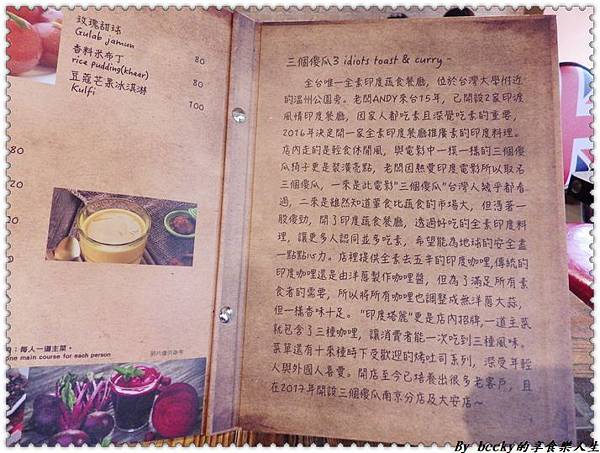 玫瑰甜球
Gulab jamun
80
香料米布丁
rice pudding(kheer)
80
豆蔻芒果冰淇淋
Kulfi
100
80
20
：每人一道主菜。
one main course for each person
照片僅供參考
三個傻瓜3 idiots toast & curry ~
全台唯一全素印度蔬食餐廳，位於台灣大學附近
的溫州公園旁。老闆ANDY來台15年，已開設2家印渡
風情印度餐廳，因家人都吃素且深覺吃素的重要，
2016年決定開一家全素印度餐廳推廣素的印度料理。
店內走的是輕食休閒風，與電影中一模一樣的三個傻
瓜椅子更是裝潢亮點，老闆因熱愛印度電影所以取名
三個傻瓜，一來是此電影"三個傻瓜"台灣人幾乎都看
過，二來是雖然知道葷食比蔬食的市場大，但憑著一
股傻勁，開了印度蔬食餐廳，透過好吃的全素印度料
理，讓更多人認同並多吃素，希望能為地球的安全盡
一點點心力。店裡提供全素去五辛的印度咖哩，傳統的
印度咖哩還是由洋蔥製作咖哩醬，但為了滿足所有素
食者的需要，所以將所有咖哩也調整成無洋蔥大蒜，
但一樣香味十足。"印度塔麗"更是店內招牌，一道主菜
就包含了三種咖哩，讓消費者能一次吃到三種風味。
菜單還有十來種時下受歡迎的烤吐司系列，深受年輕
人與外國人喜愛。開店至今已培養出很多老客戶，且
在2017年開設三個傻瓜南京分店及大安店~
By bccky的享食樂人生